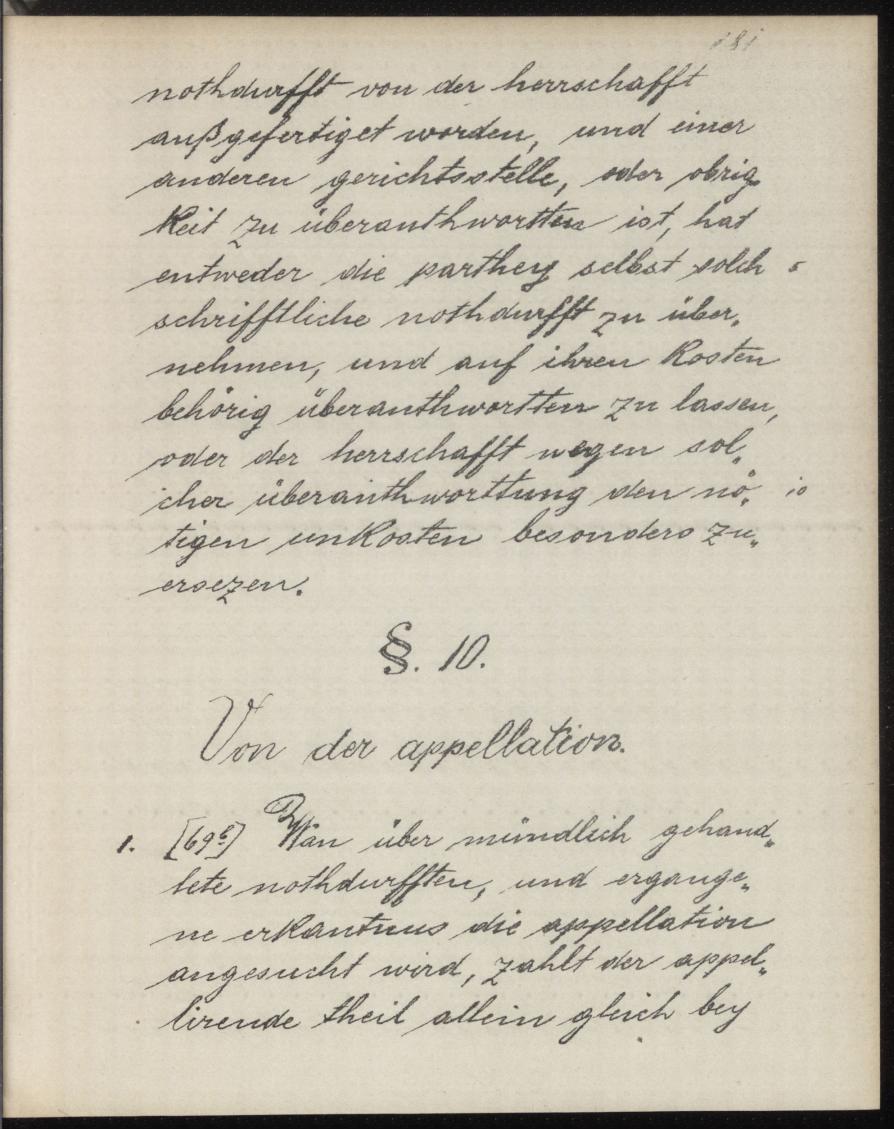 181
nothdurfft von der herrschafft
außgefertiget worden, und einer
anderen gerichtsstelle, oder obrig
Keit zu überanthwortten ist, hat
entweder die parthey selbst solch 5
schrifftliche nothdurfft zu über„
nehmen, und auf ihren Kosten
behörig überanthwortten zu lassen,
oder der herrschafft wegen sol„
cher überanthworttung den nö„ 10
tigen unKosten besonders zu„
ersezen.
§. 10.
Von der appellation.
1. [69] Wan über mündlich gehand„
lete nothdurfften, und ergange„
ne erKantnus die appellation
angesucht wird, zahlt der appel„
lirende theil allein gleich bey